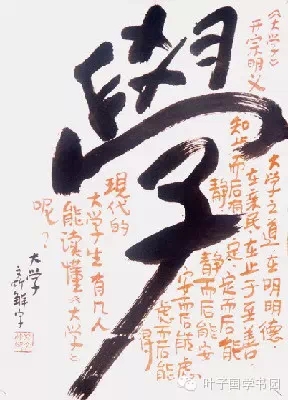 學
《大学》
开宗明义
大学之道在明明德·
在亲民在止于至善·
知止而后有定定而后能
静
静而后能安
安而后能虑
虑而后能
得
現代的
大学生有几人
能读懂《大学》
呢？
大学
解字
叶子国学书团